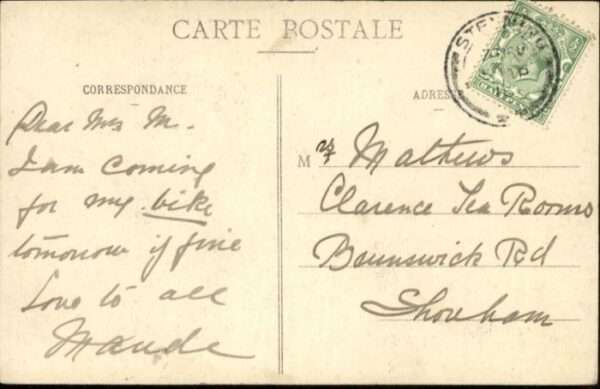 CARTE POSTALE
CORRESPONDANCE
Dear Mrs M.
I am coming
for my bike
tomorrow if fine
Love to all
Maude
ADRES
M rs Mathews
Clarence Tea Rooms
Brunswick Rd
Shoreham
STEYNING